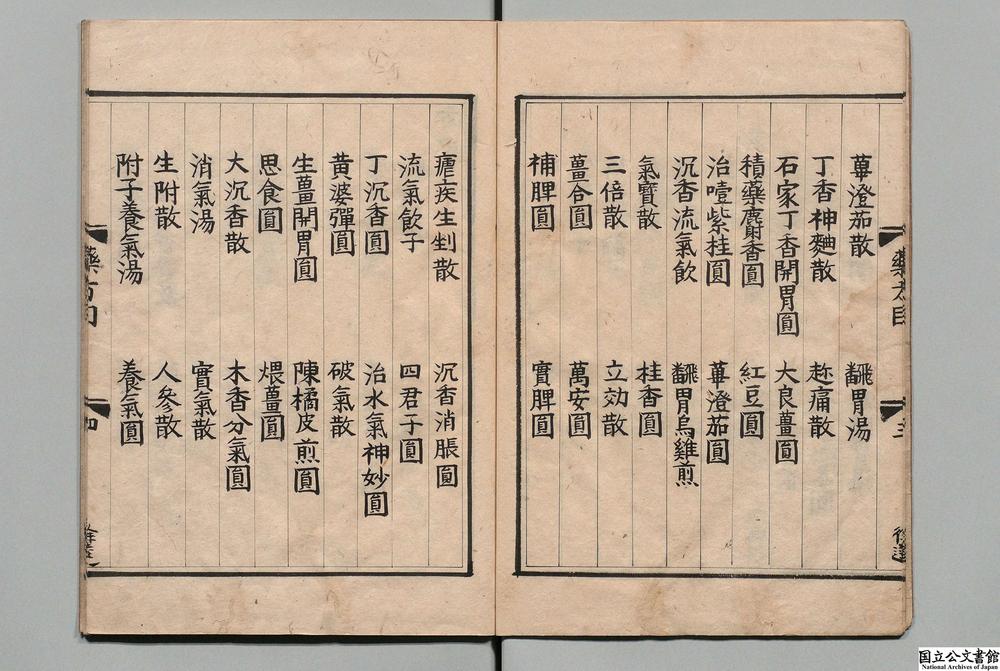 蓽澄茄散　飜胃湯
丁香神麯散　趂痛散
石家丁香開胃圓　大良薑圓
積藥麝香圓　紅豆圓
治噎紫桂圓　蓽澄茄圓
沉香流氣飲　飜胃烏雞煎
氣寶散　桂香圓
三倍散　立効散
薑合圓　萬安圓
補脾圓　實脾圓
瘧疾生剉散　沉香消脹圓
流氣飲子　四君子圓
丁沉香圓　治水氣神妙圓
黃婆彈圓　破氣散
生薑開胃圓　陳橘皮煎圓
思食圓　煨薑圓
大沉香散　木香分氣圓
消氣湯　實氣散
生附散　人參散
附子養氣湯　養氣圓
国立公文書館
National Archives of Japan